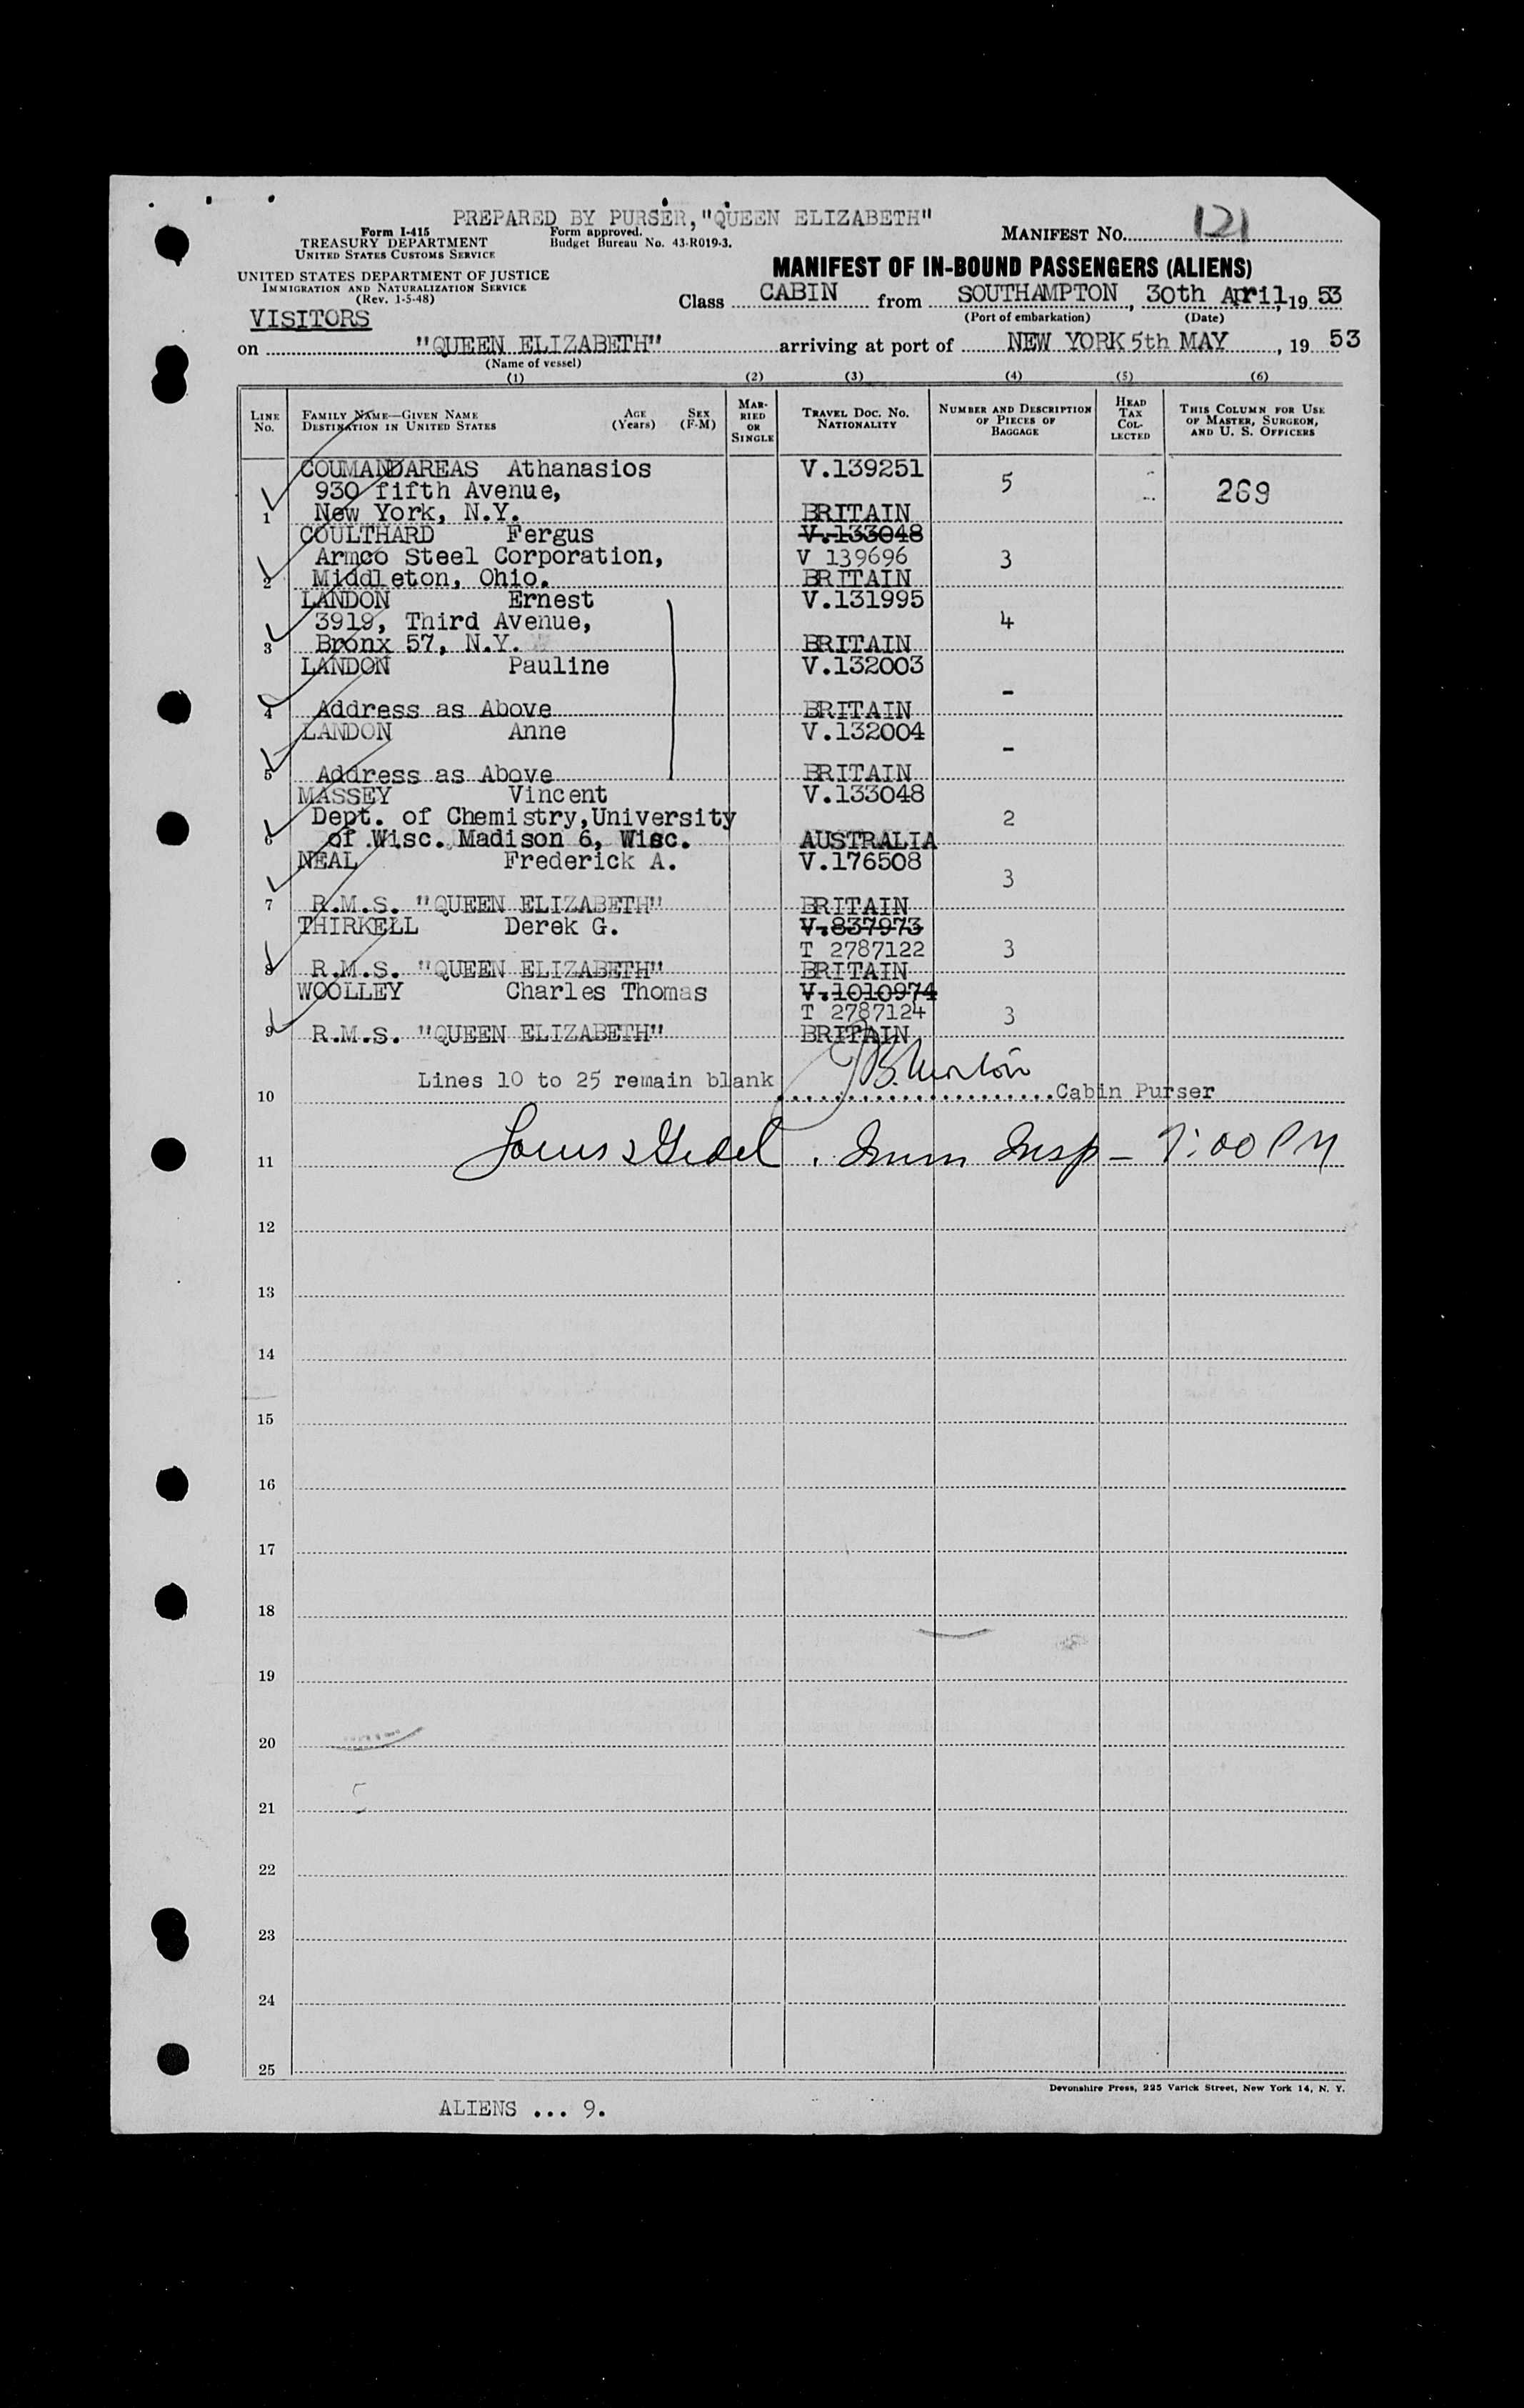 PREPARED BY PURSER, "QUEEN ELIZABETH"
Form I-415
TREASURY DEPARTMENT
UNITED STATES CUSTOMS SERVICE
Form approved.
Budget Bureau No. 43-R019-3.
MANIFEST NO. 121
UNITED STATES DEPARTMENT OF JUSTICE
IMMIGRATION AND NATURALIZATION SERVICE
(Rev. 1-5-48)
MANIFEST OF IN-BOUND PASSENGERS (ALIENS)
Class CABIN from SOUTHAMPTON, 30th April, 19 53
(Port of embarkation) (Date)
VISITORS
on "QUEEN ELIZABETH" arriving at port of NEW YORK 5th MAY, 19 53
(Name of vessel)
(1) (2) (3) (4) (5) (6)
LINE No.
FAMILY NAME—GIVEN NAME
DESTINATION IN UNITED STATES
AGE (Years)
SEX (F-M)
MARRIED OR SINGLE
TRAVEL DOC. NO.
NATIONALITY
NUMBER AND DESCRIPTION OF PIECES OF BAGGAGE
HEAD TAX COLLECTED
THIS COLUMN FOR USE OF MASTER, SURGEON, AND U. S. OFFICERS
COUMANDAREAS Athanasios V.139251
930 fifth Avenue, 5 269
1 New York, N.Y. BRITAIN
COULTHARD Fergus V.133048
Armco Steel Corporation, V 139696 3
2 Middleton, Ohio. BRITAIN
LANDON Ernest V.131995
3919, Third Avenue, 4
3 Bronx 57, N.Y. BRITAIN
LANDON Pauline V.132003
-
4 Address as Above BRITAIN
LANDON Anne V.132004
-
5 Address as Above BRITAIN
MASSEY Vincent V.133048
Dept. of Chemistry,University 2
6 of Wisc. Madison 6, Wisc. AUSTRALIA
NEAL Frederick A. V.176508
3
7 R.M.S. "QUEEN ELIZABETH" BRITAIN
THIRKELL Derek G. V.837973
T 2787122 3
8 R.M.S. "QUEEN ELIZABETH" BRITAIN
WOOLLEY Charles Thomas V.1010974
T 2787124 3
9 R.M.S. "QUEEN ELIZABETH" BRITAIN
Lines 10 to 25 remain blank
10 Cabin Purser
11 Imm Insp - 7:00 PM
12
13
14
15
16
17
18
19
20
21
22
23
24
25
Devonshire Press, 225 Varick Street, New York 14, N. Y.
ALIENS ... 9.